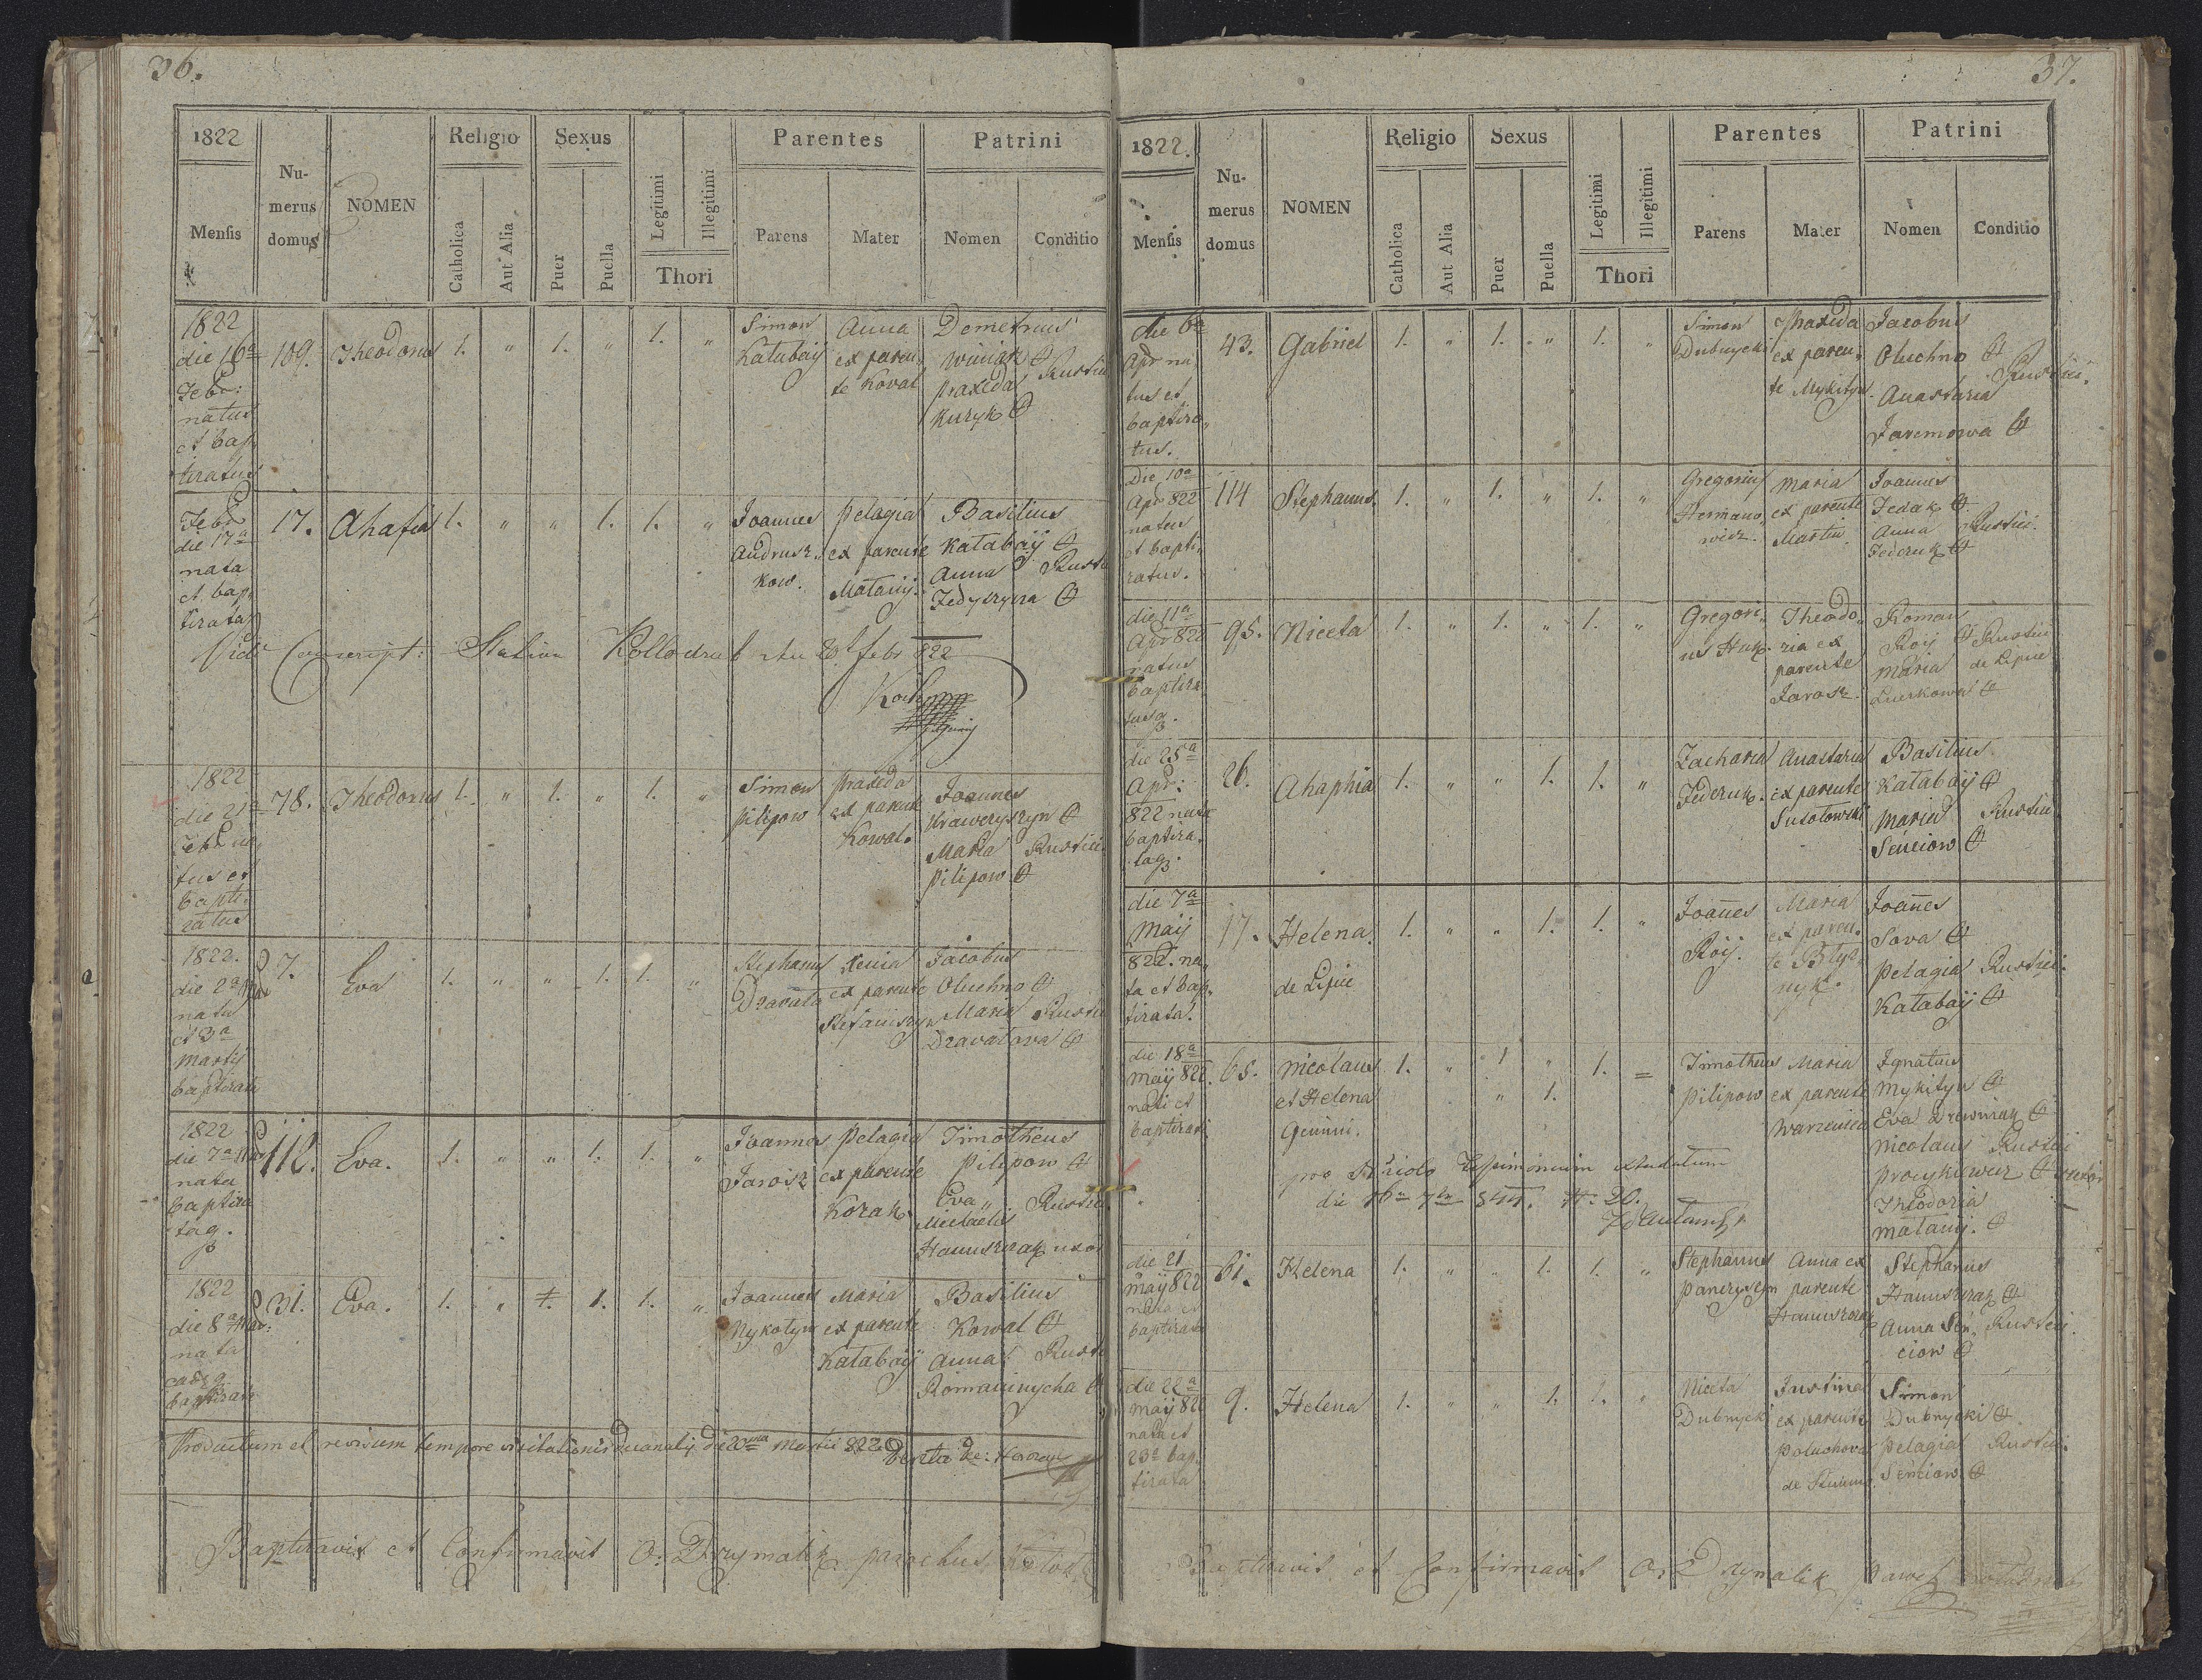 36.
1822
Mensis
Nu-
merus
domus
NOMEN
Religio
Catholica
Aut Alia
Sexus
Puer
Puella
Legitimi
Illegitimi
Thori
Parentes
Parens
Mater
Patrini
Nomen
Conditio
1822
die 16a
Febr:
natus
et bap
tizatus
109.
Theodorus
1. " 1. " 1. "
Simon
Katabaij
Anna
ex paren
te Koval
Demetrius
Winiak
praxeda
Kuzyk
Rustici
Febr
die 17a
nata
et bap
tizata
17.
Ahafia
1. " " 1. 1. "
Joannes
Andrusz
kow.
Pelagia
ex parente
Matanij
Basilius
Katabaij
Anna
Fedyszyna
Vidi Conscript: Station Kollodrub den 20t febr 822
Koch
1822
die 21a
Febr na
tus et
bapti
zatus
78.
Theodorus
1. " 1. " 1. "
Simon
Pilipow
praxeda
ex parente
Kowal.
Joannes
Maria
Pilipow
Rustici
1822.
die 2a Mar
nata
et 3a
Martij
baptizata
7.
Eva
1. " " 1. 1. "
Stephanus
Dzavata
Xenia
ex parente
Stefaniszyn
Jacobus
Oluchno
Maria
Dzavatova
1822
die 7a Mar
nata
baptiza
taq.
112.
Eva.
1. " " 1. 1. "
Joannes
Jarosz
Pelagia
ex parente
Kozak
Timotheus
Pilipow
Eva
Michaelis
Hanuszczak uxor
1822
die 8a Mar:
nata
eadq
baptizata
31.
Eva.
1. " 1. 1. "
Joannes
Mykotyn
Maria
ex parente
Katabaij
Basilius
Kowal
Anna
Romaninycha
Productum et revisum tempore visitationis decanalis die Martii 822
Baptizavit et Confirmavit A: Drymalik parochus
37.
1822.
Mensis
Nu-
merus
domus
NOMEN
Religio
Catholica
Aut Alia
Sexus
Puer
Puella
Legitimi
Illegitimi
Thori
Parentes
Parens
Mater
Patrini
Nomen
Conditio
die 6a
Apr na
tus et
baptiza
tus.
43.
Gabriel
1. " 1. " 1. "
Simon
Dubnycki
Praxeda
ex paren
te Mykityn
Jacobus
Oluchno
Anastasia
Jaremowa
Rustici.
Die 10a
Apr 822
natus
et bapti
zatus.
114
Stephanus.
1. " 1. " 1. "
Gregorius
Hermano
wicz.
Maria
ex parente
Martin
Joannes
Fedak
Anna
Federuk
Rustici.
die 11a
Apr 822
natus
baptiza
tusq.
95.
Niceta
1. " 1. " 1. "
Gregori
us Huk.
Theodo
ria ex
parente
Jarosz.
Roman
Roij
Maria
Luczkowa
Rustici
de Lipice
die 25a
Apr:
822 nata
baptiza
taq.
26.
Ahaphia
1. " " 1. 1. "
Zacharia
Federuk.
Anastasia
ex parente
Susolowski
Basilius
Katabaij
Maria
Senciow
Rustici
die 7a
Maij
822. na
ta et bap
tizata.
17.
Helena.
de Lipice
1. " " 1. 1. "
Joañes
Roij.
Maria
ex paren
te
Joañes
Sova
Pelagia
Katabaij
Rustici.
die 18a
maij 822.
nati et
baptizati
65.
Nicolaus
et Helena
Gemini.
1. " 1 " 1.
" 1.
Timotheus
Pilipow
Maria
ex parente
Ignatius
Mykityn
Eva Drewniak
Nicolaus Rustici
Theodoria
Matanij.
pro Testimonium extradatum
die 16a 7br 844.
die 21
maij 822
nata et
baptizata
61.
Helena
1. " " 1. 1. "
Stephanus
Panczyszyn
Anna ex
parente
Hanuszczak
Stephanus
Hanuszczak
Anna Sen
ciow
Rustici.
die 22a
maij 822
nata et
23a bap
tizata
9.
Helena
1. " " 1. 1. "
Niceta
Dubnycki
Justina
ex parente
Poluchova
Simon
Dubnycki
Pelagia
Senciow
Rustici.
Baptizavit et Confirmavit A: Drymalik